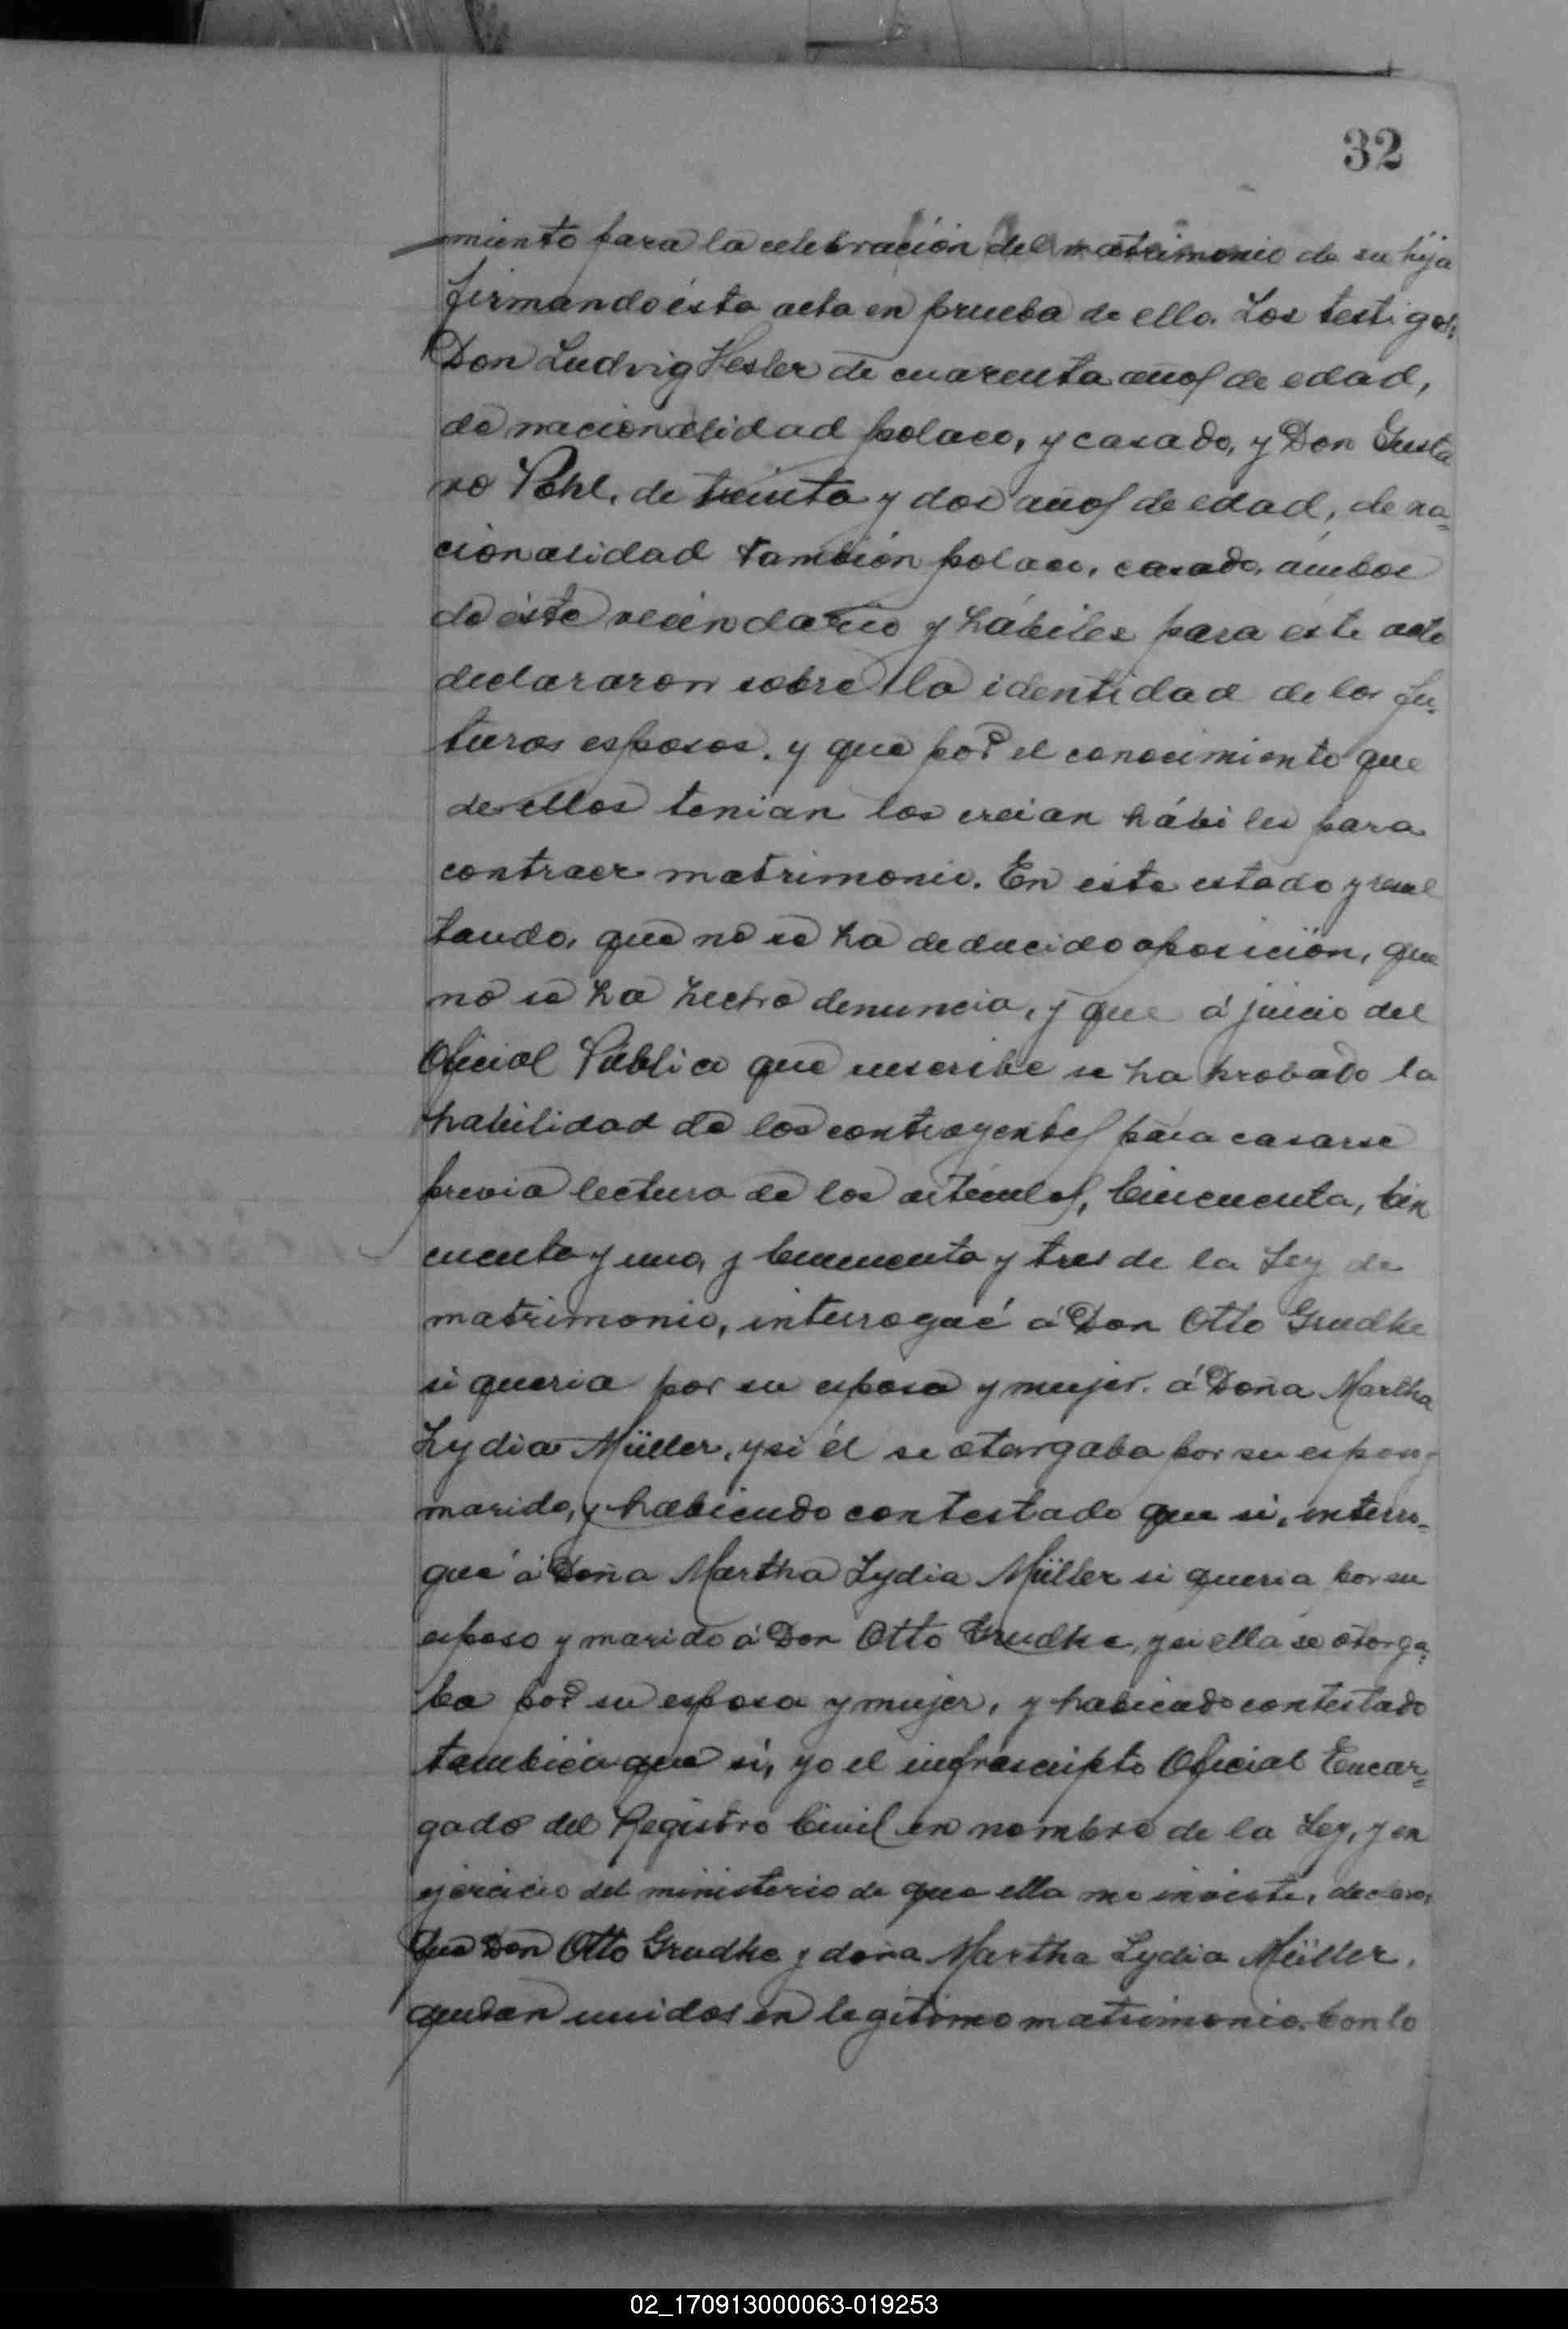 32
miento para la celebración del matrimonio de su hija
firmando ésta acta en prueba de ello. Los testigos,
Don Ludvig Hesler de cuarenta años de edad,
de nacionalidad polaco, y casado, y Don Gusta
vo Pohl, de treinta y dos años de edad, de na=
cionalidad también polaco, casado, ámbos
de éste vecindario y hábiles para éste acto
declararon sobre la identidad de los fu-
turos esposos. y que por el conocimiento que
de ellos tenian los creian hábiles para
contraer matrimonio. En este estado y resul
tando, que no se ha deducido oposición, que
no se ha hecho denuncia, y que á juicio del
Oficial Público que suscribe se ha probado la
habilidad de los contrayentes para casarse
previa lectura de los artículos, Cincuenta, Cin
cuenta y uno, y Cincuenta y tres de la Ley de
matrimonio, interrogué á Don Otto Grudke
si queria por su esposa y mujer. á Doña Martha
Lydia Müller, y si él se otorgaba por su esposo y
marido, y habiendo contestado que si, interro-
gué á Doña Martha Lydia Müller si queria por su
esposo y marido á Don Otto Grudke, y si ella se otorga-
ba por su esposa y mujer, y habiendo contestado
también que si, yo el infrascripto Oficial Encar=
gado del Registro Civil en nombre de la Ley, y en
ejercicio del ministerio de que ella me inviste, declaro,
que Don Otto Grudke y doña Martha Lydia Müller,
quedan unidos en legitimo matrimonio. Con lo
02_170913000063-019253